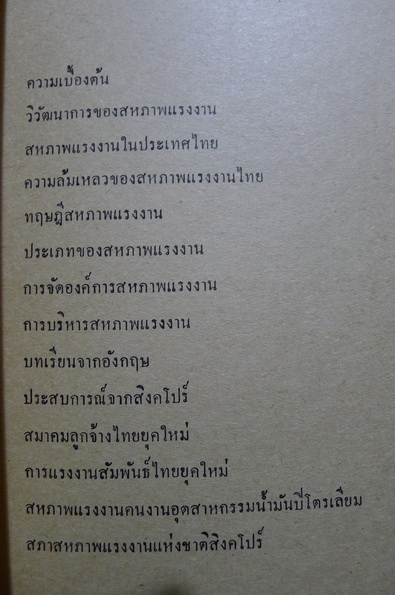 ความเบื้องต้น
วิวัฒนาการของสหภาพแรงงาน
สหภาพแรงงานในประเทศไทย
ความล้มเหลวของสหภาพแรงงานไทย
ทฤษฎีสหภาพแรงงาน
ประเภทของสหภาพแรงงาน
การจัดองค์การสหภาพแรงงาน
การบริหารสหภาพแรงงาน
บทเรียนจากอังกฤษ
ประสบการณ์จากสิงคโปร์
สมาคมลูกจ้างไทยยุคใหม่
การแรงงานสัมพันธ์ไทยยุคใหม่
สหภาพแรงงานคนงานอุตสาหกรรมน้ำมันปิโตรเลียม
สภาสหภาพแรงงานแห่งชาติสิงคโปร์